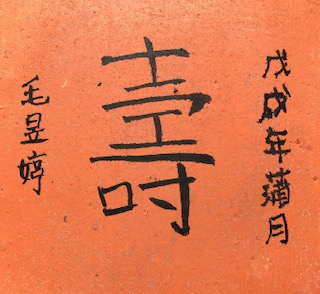 戊戌年蒲月
壽
毛昱婷